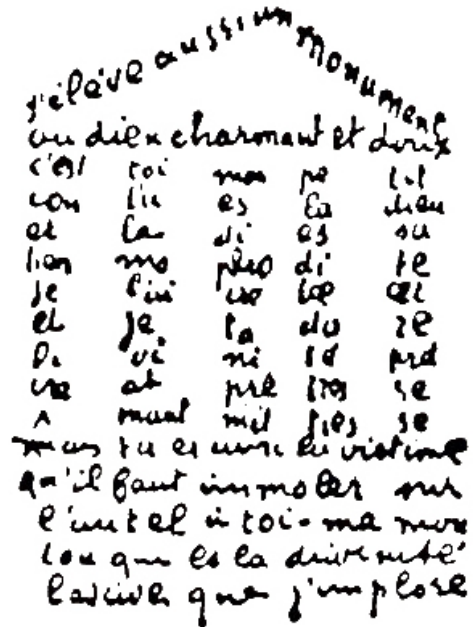 J'élève aussi un monument
au dieu charmant et doux
c'est toi mon pe tit
con tu es la dieu
et la di es su
mo phro di te
je l'in vo
et je ta do re
Di vi ni té pré
at pre tres se
A mant mil ties se
mais tu es aussi la victime
qu'il faut immoler sur
l'autel à toi-mê mon
lou qui es la divinité
lascive que j'implore